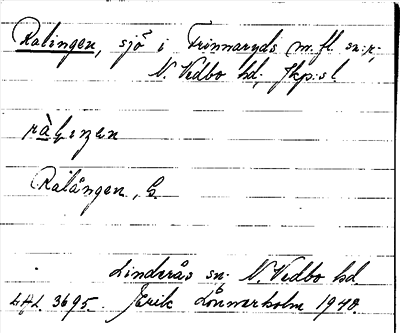 Ralingen, sjö i Frinnaryds m.fl. sn:r,
N. Vedbo hd, Jkp:s l.
Rålången, G.
Linderås sn. N. Vedbo hd.
3695. Erik Lönnerholm 1940.